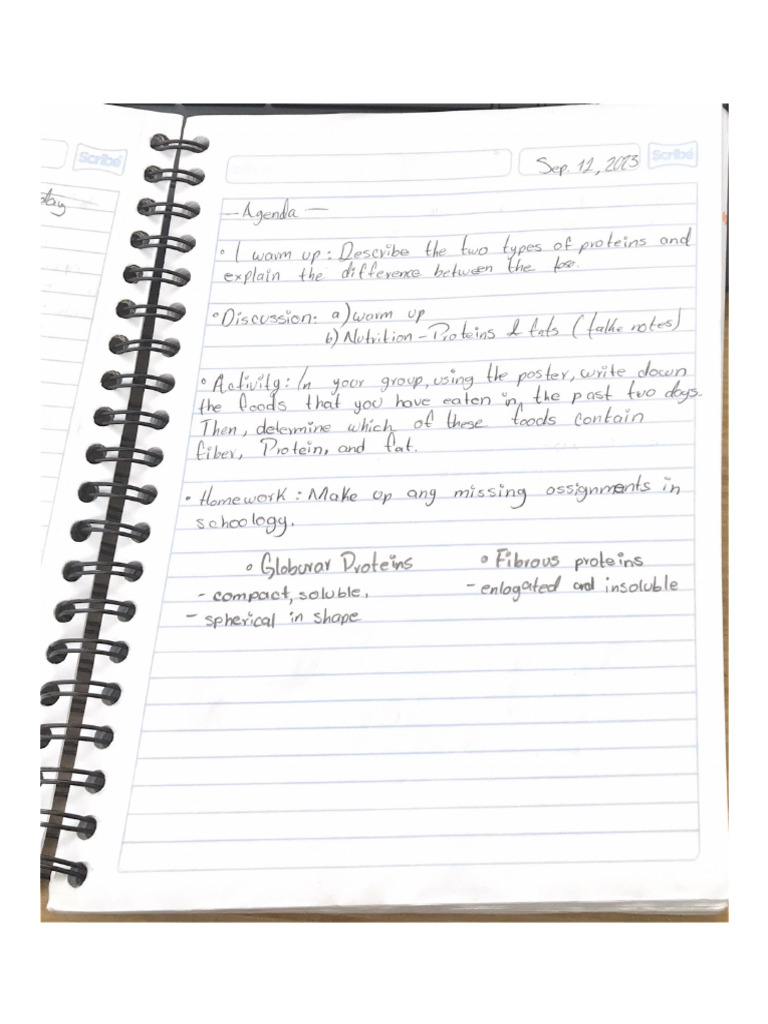 Scribe
Sep. 12, 2023
Scribe
— Agenda —
• I warm up: Describe the two types of proteins and
explain the difference between the
• Discussion: a) warm up
b) Nutrition - Proteins & fats (talke notes)
• Activity: In your group, using the poster, write down
the foods that you have eaten in the past two days.
Then, determine which of these foods contain
fiber, Protein, and fat.
• Homework: Make up any missing assignments in
schoology.
• Globurar Proteins
• Fibrous proteins
- compact, soluble,
- enlogated and insoluble
- spherical in shape